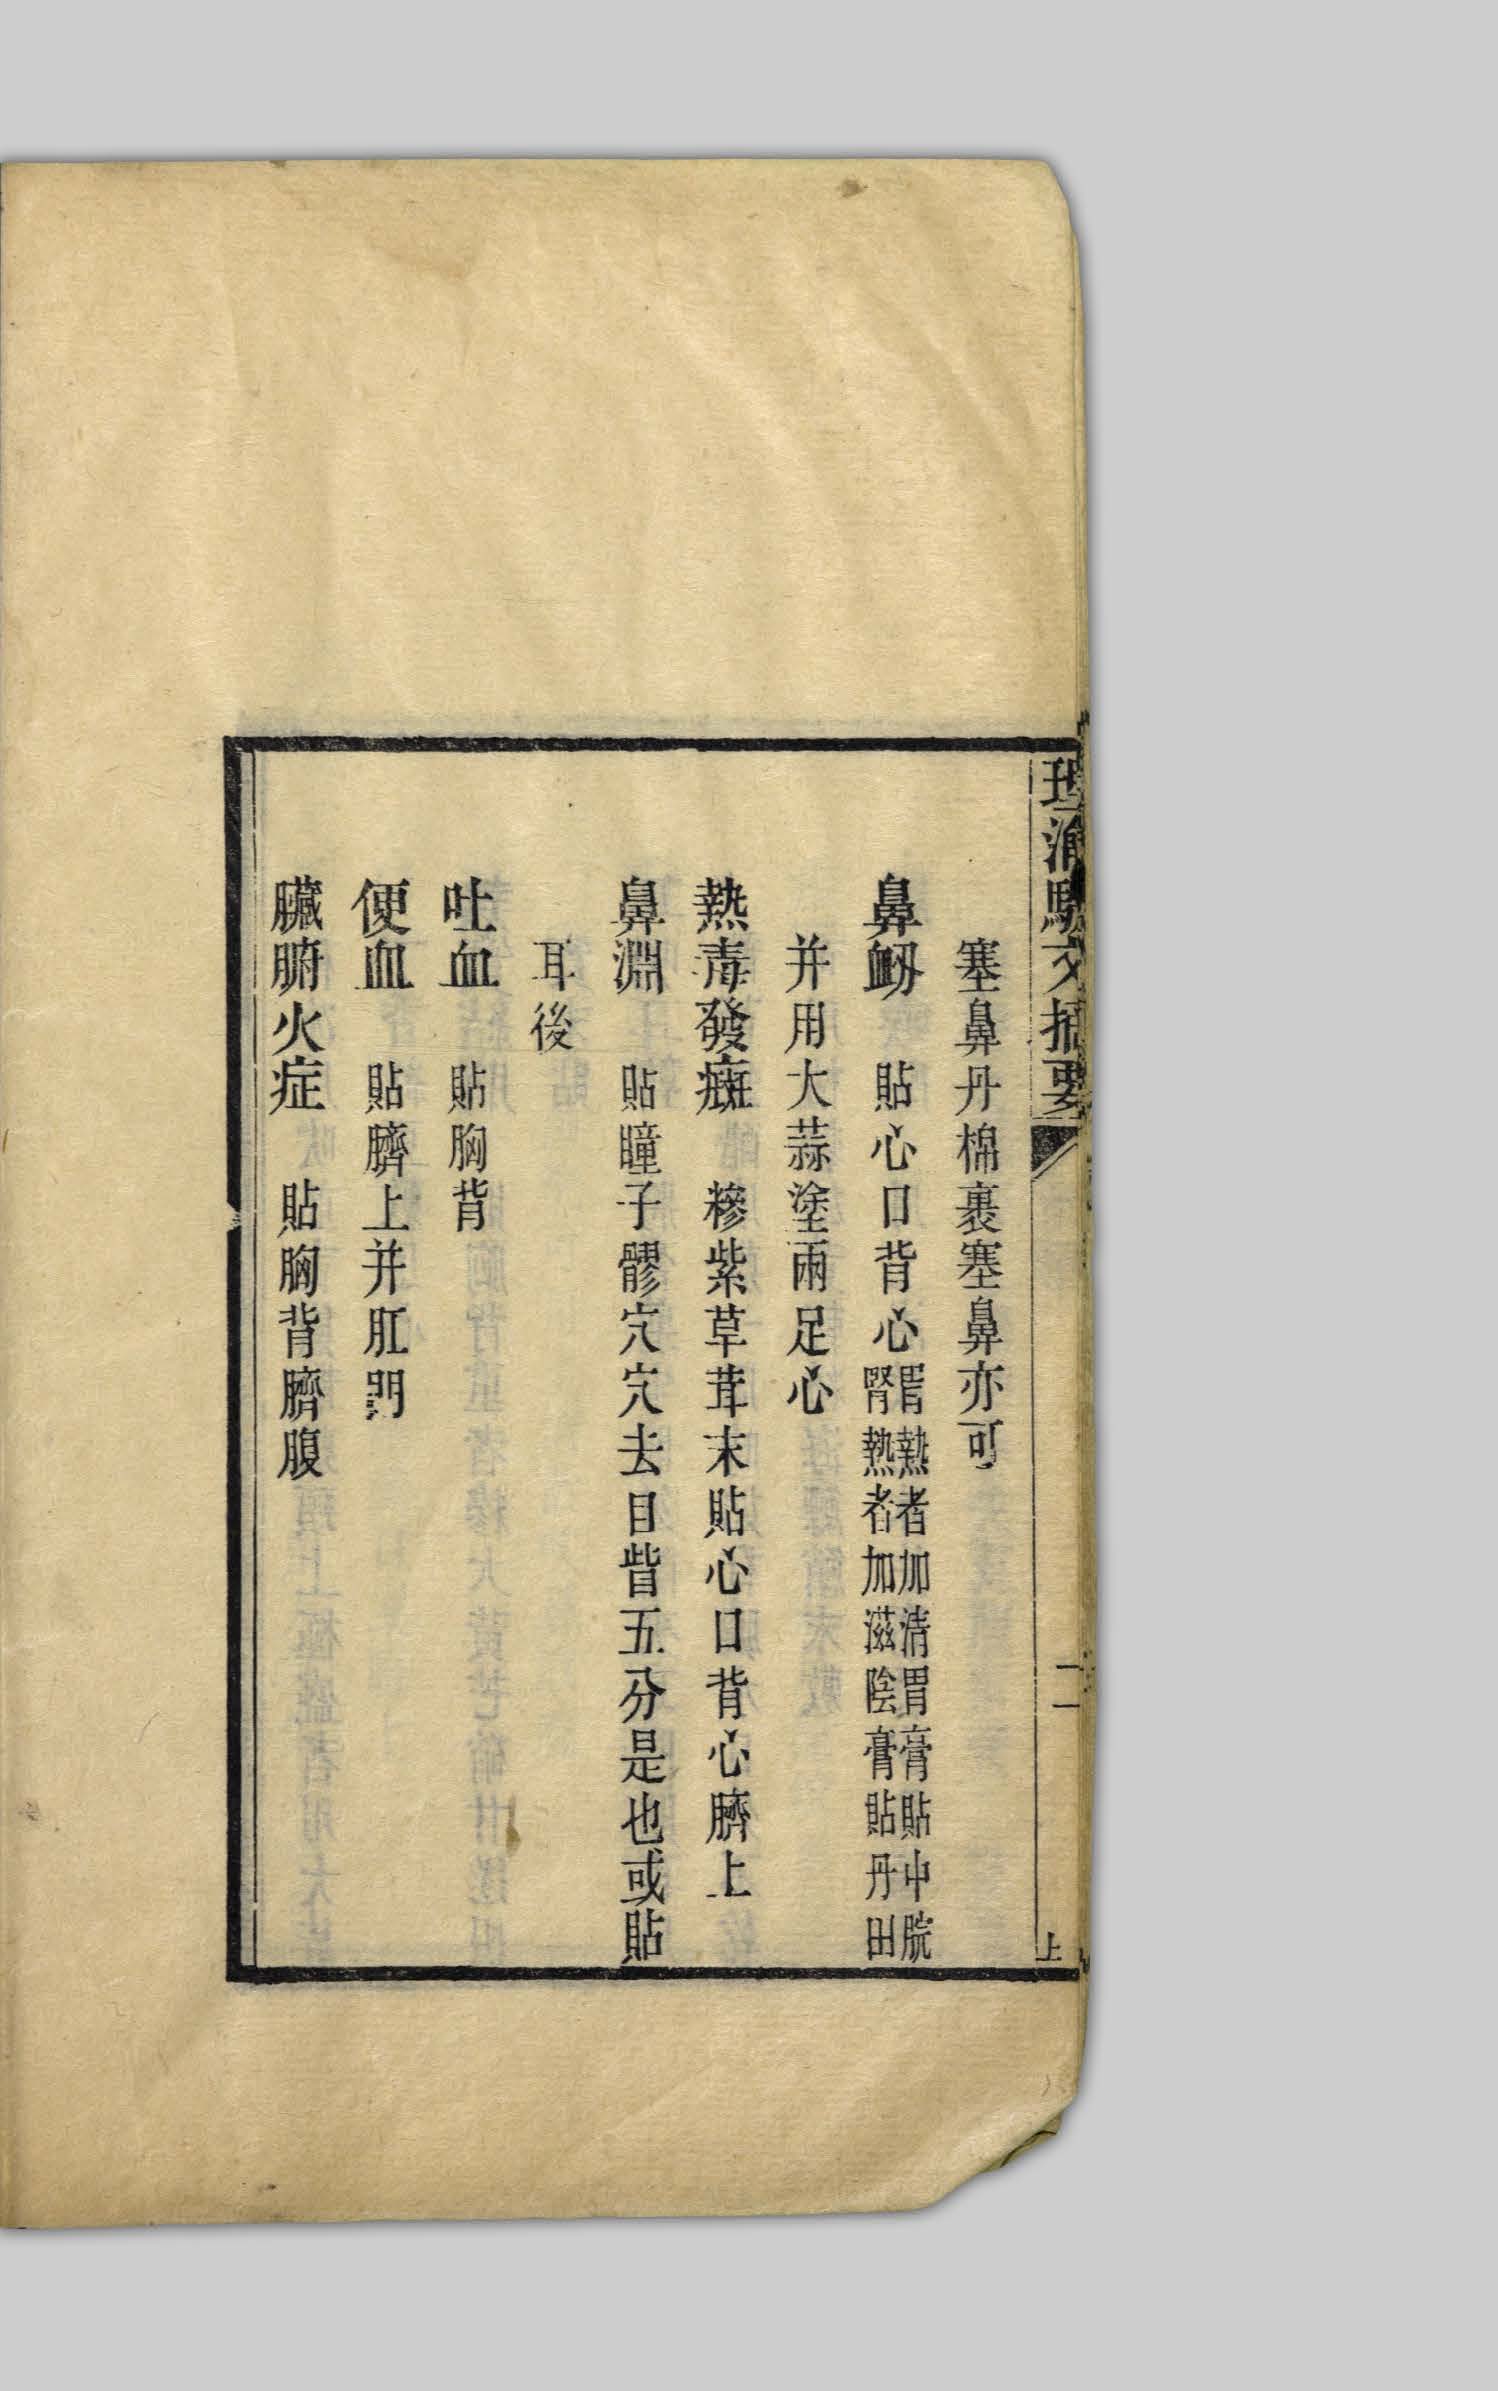 理瀹駢文摘要
二
上
塞鼻丹棉裹塞鼻亦可
鼻衂 貼心口背心胃熱者加清胃膏貼中脘
腎熱者加滋陰膏貼丹田
并用大蒜塗兩足心
熱毒發癍 糝紫草茸末貼心口背心臍上
鼻淵 貼瞳子髎穴穴去目眥五分是也或貼
耳後
吐血 貼胸背
便血 貼臍上并肛門
臟腑火症 貼胸背臍腹